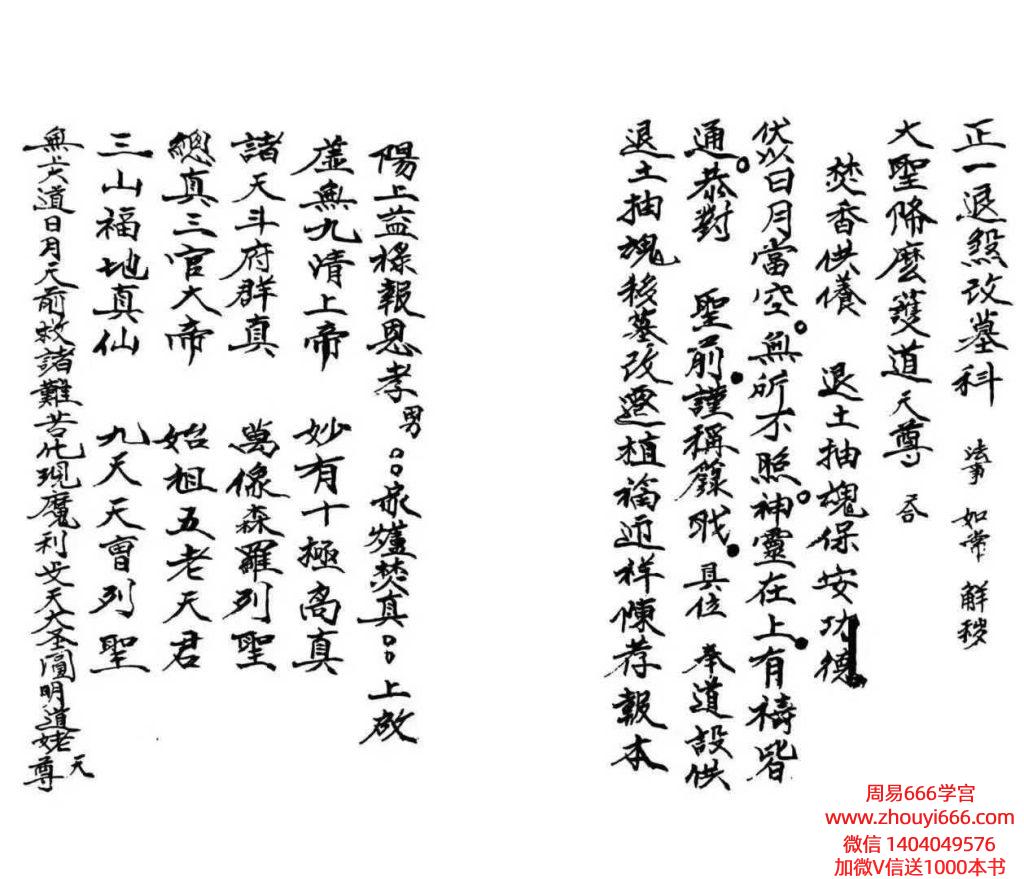 正一退煞改墓科 法事 如常 解穢
大聖降魔護道天尊
焚香供養 退土抽魂保安功德
伏以日月當空。無所不照。神靈在上。有禱皆
通。恭對 聖前。謹稱籙職。具位 奉道設供
退土抽魂移墓改遷植福迎祥陳荐報本
陽上益祿報恩孝男○○家爐焚真○○上啟
虛無九清上帝 妙有十極高真
諸天斗府群真 萬像森羅列聖
總真三官大帝 始祖五老天君
三山福地真仙 九天天曹列聖
無上大道日月天前救諸難苦化現魔利支天大圣圓明道姥天尊
周易666学宫
www.zhouyi666.com
微信 1404049576
加微V信送1000本书